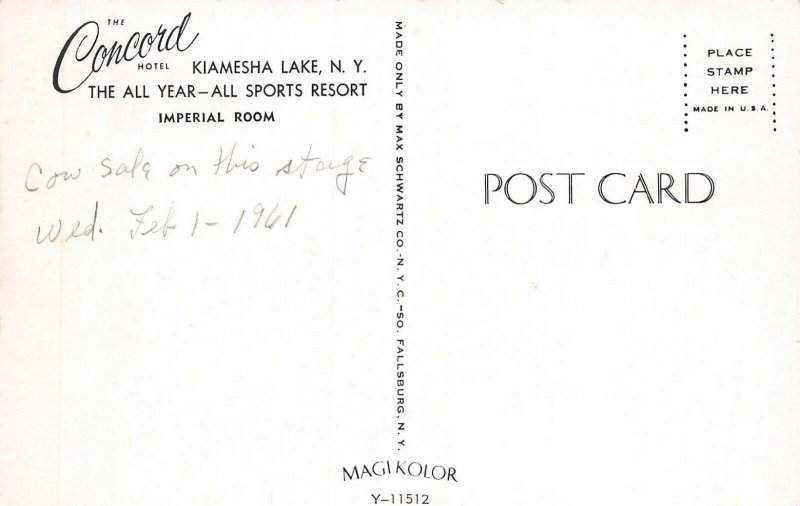 THE
Concord
HOTEL KIAMESHA LAKE, N. Y.
THE ALL YEAR—ALL SPORTS RESORT
IMPERIAL ROOM
Cow sale on this stage
Wed. Feb 1 - 1961
MADE ONLY BY MAX SCHWARTZ CO.-N. Y. C. -SO. FALLSBURG, N. Y.
PLACE
STAMP
HERE
MADE IN U.S.A.
POST CARD
MAGI KOLOR
Y-11512